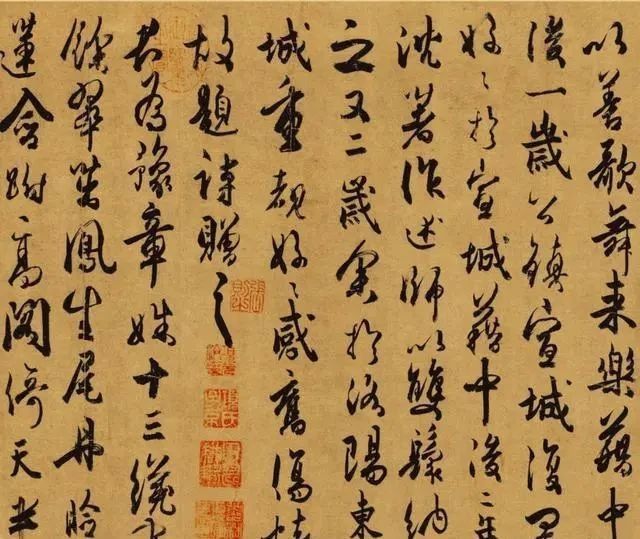 以善歌舞来樂籍中
後一歲公鎮宣城復置
好〻於宣城籍中後二年
沈著作述師以雙鬟納
之又二歲余於洛陽東
城重覩好〻感舊傷懷
故題詩贈之
君為豫章姝十三纔
餘翠茁鳳生尾丹臉
蓮含跗高閣倚天半